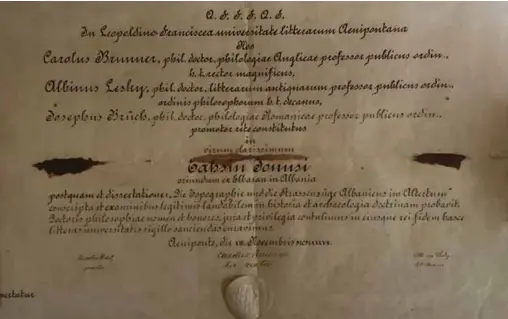 Q. F. F. F. Q. S.
In Leopoldino Franciscea universitate litterarum Aenipontana
Nos
Carolus Brunner, phil. doctor, philologiae Anglicae professor publicus ordin.,
h. t. rector magnificus,
Albinus Lesky, phil. doctor, litterarum antiquarum professor publicus ordin.,
ordinis philosophorum h. t. decanus,
Josephus Brüch, phil. doctor, philologiae Romanicae professor publicus ordin.,
promotor rite constitutus
in
virum clarissimum
oriundum ex Elbasan in Albania
postquam et dissertatione: „Die Topographie und die Strassenzüge Albaniens im Altertum"
conscripta et examinibus legitimis laudabilem in historia et archaeologia doctrinam probavit,
Doctoris philosophiae nomen et honores, jura et privilegia contulimus in ejusque rei fidem hasce
litteras universitatis sigillo sanciendas curavimus.
Aeniponte, die